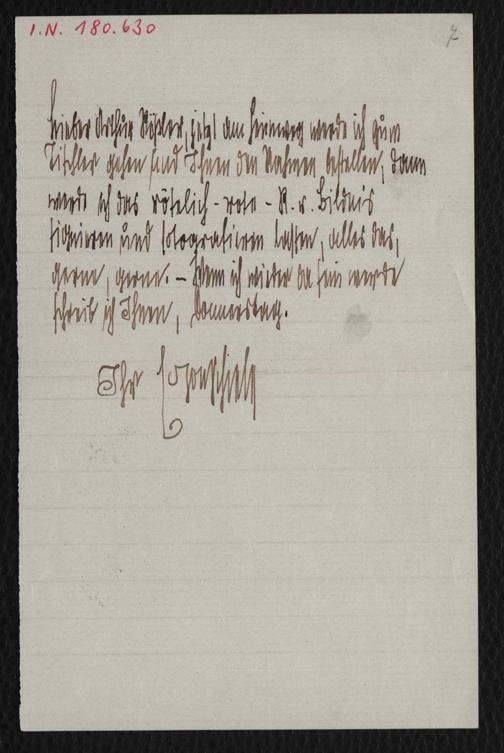 I.N. 180.630
7
Lieber Arthur Rößler, jetzt am Heimweg werde ich zum
Tischler gehen und Ihnen den Rahmen bestellen, dann
werde ich das rötelich-rote - R. v. Bildnis
signieren und fotografieren lassen, alles das,
gerne, gerne. – Wenn ich wieder da sein werde
schreib ich Ihnen, Donnerstag.
Ihr Egon Schiele